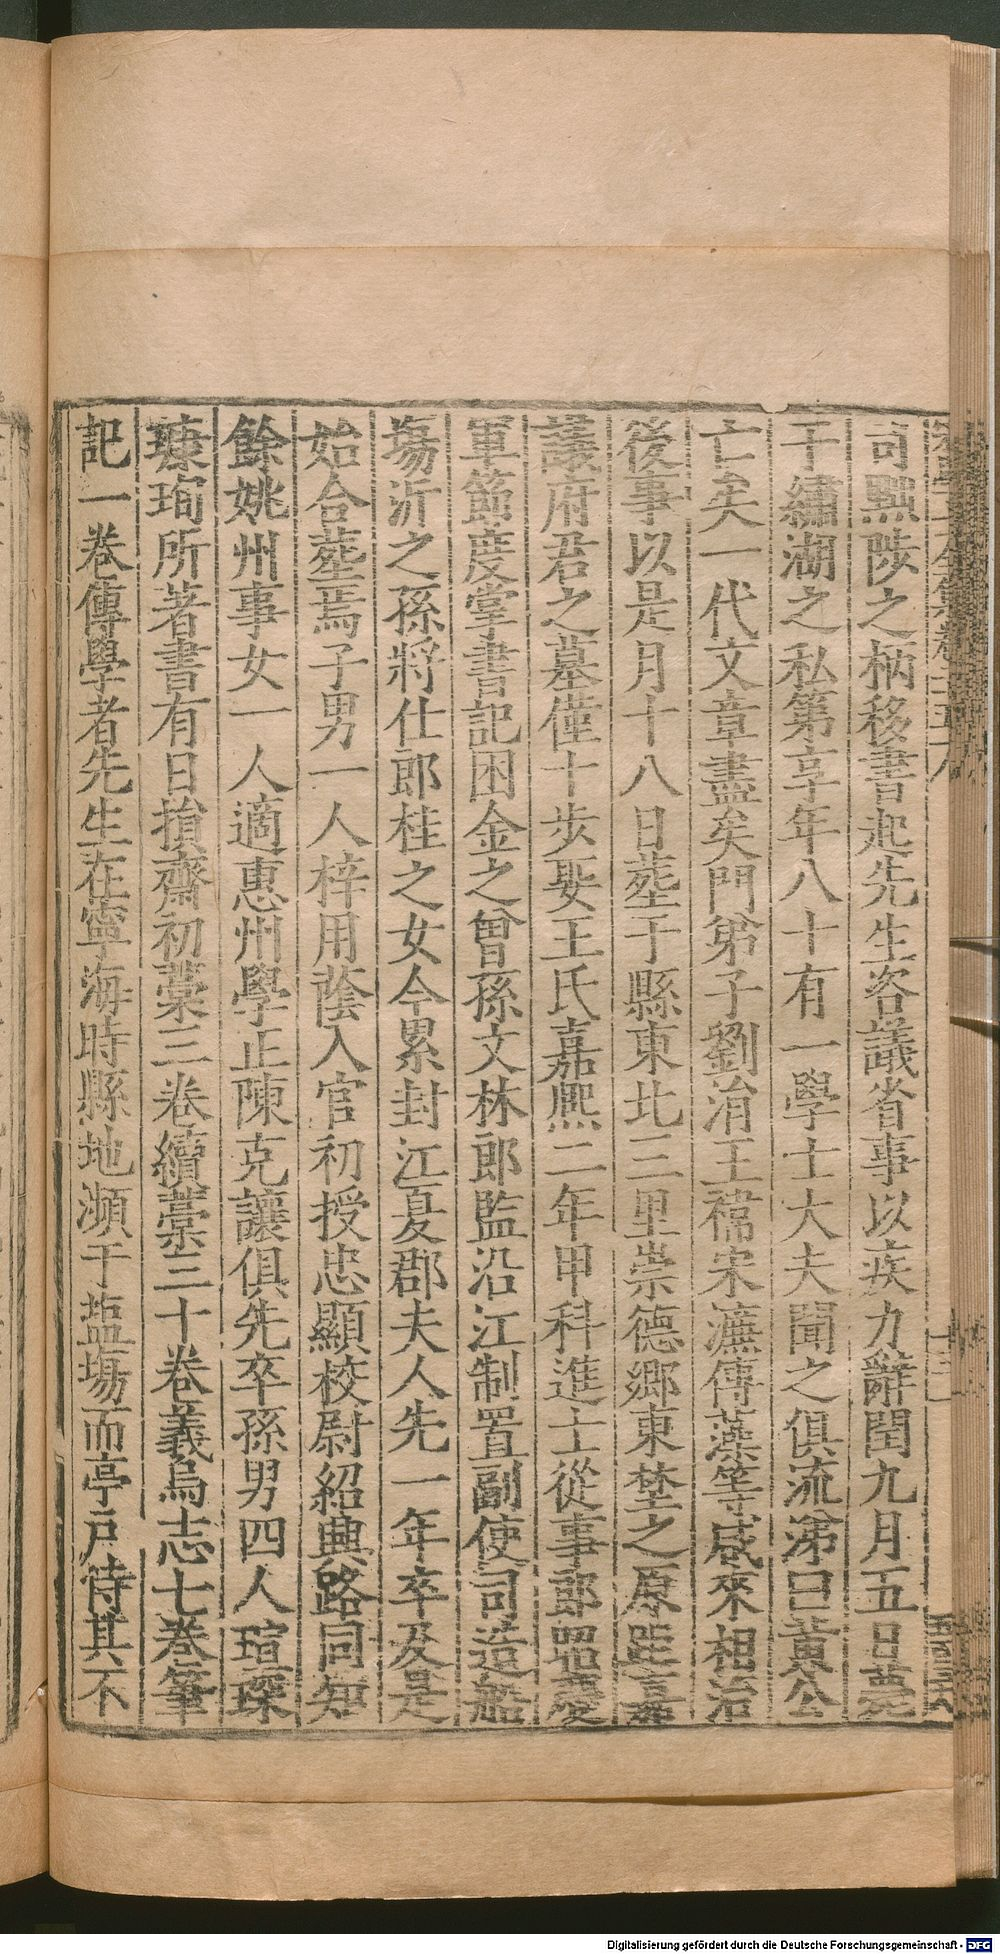 司黜陟之柄移書起先生咨議省事以疾力辭閏九月五日薨
于繡湖之私第享年八十有一學士大夫聞之俱流涕曰黃公
亡矣一代文章盡矣門弟子劉涓王褘宋濂傅藻等咸來相治
後事以是月十八日塟于縣東北三里崇德鄉東埜之原距嘉
議府君之墓僅十步娶王氏嘉熈二年甲科進士從事郎昭慶
軍節度掌書記困金之曾孫文林郎監沿江制置副使司造船
塲沂之孫將仕郎桂之女今累封江夏郡夫人先一年卒及是
始合塟焉子男一人梓用蔭入官初授忠顯校尉紹興路同知
餘姚州事女一人適惠州學正陳克讓俱先卒孫男四人瑄琛
㻂珣所著書有日損齋初藁三卷續藁三十卷義烏志七卷筆
記一卷傳學者先生在寧海時縣地瀕于塩塲而亭戶恃其不
Digitalisierung gefördert durch die Deutsche Forschungsgemeinschaft - DFG